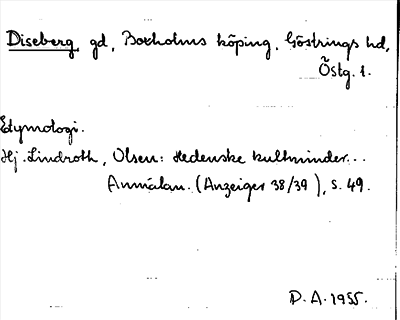 Diseberg, gd, Boxholms köping, Göstrings hd,
Östg. l.
Etymologi.
Hj. Lindroth, Olsen: Hedenske kultminder...
Anmälan. (Anzeiger 38/39), s. 49.
D. A. 1955.